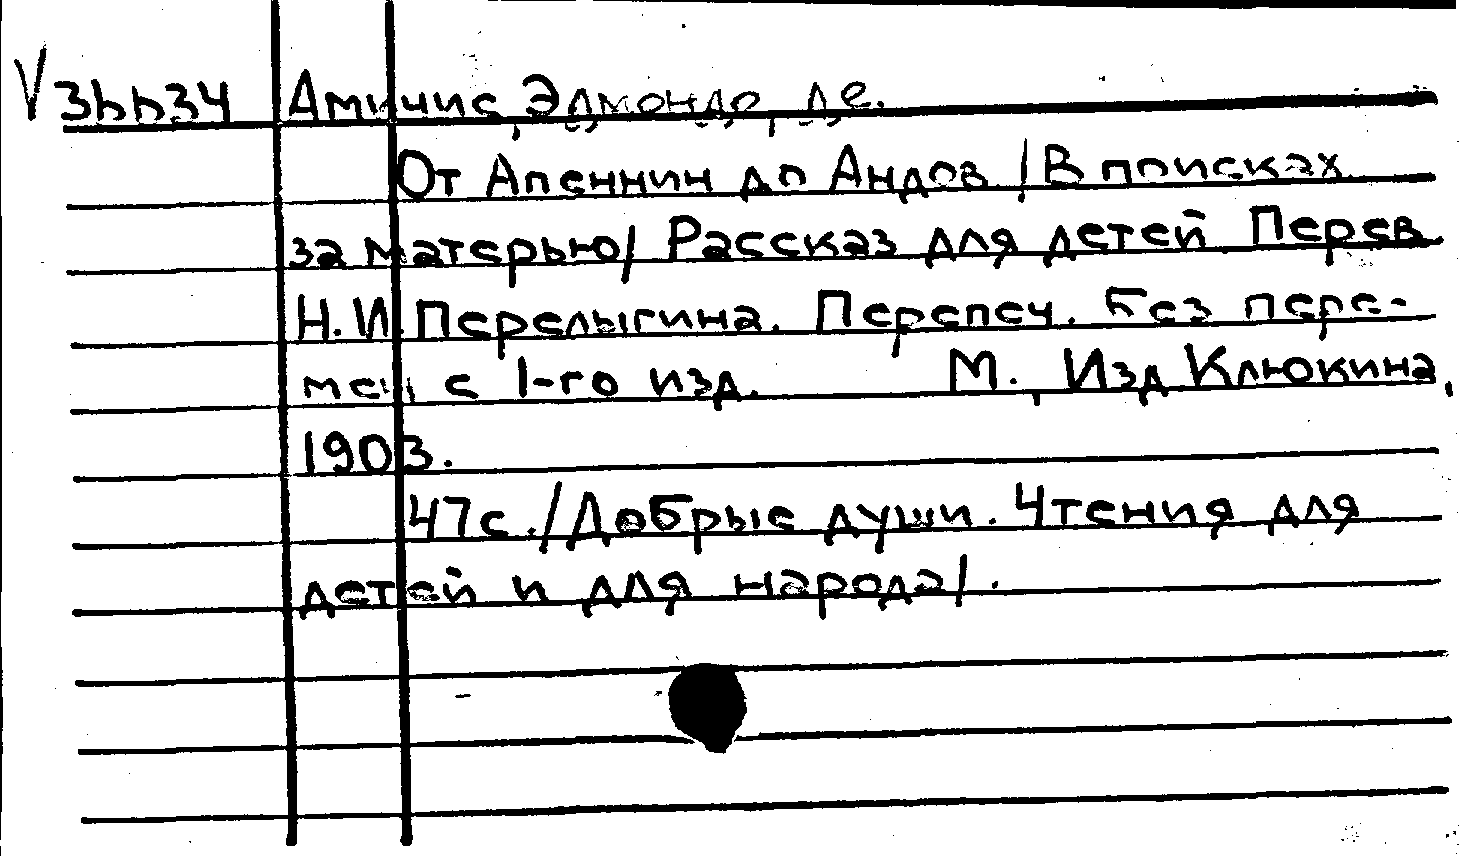 V 36634 Амичис, Эдмондо, де.
От Апеннин до Андов /В поисках
за матерью/ Рассказ для детей Перев.
Н.И.Перелыгина. Перепеч. без пере-
мен с 1-го изд. М., Изд Клюкина,
1903.
47с./Добрые души. Чтения для
детей и для народа/.